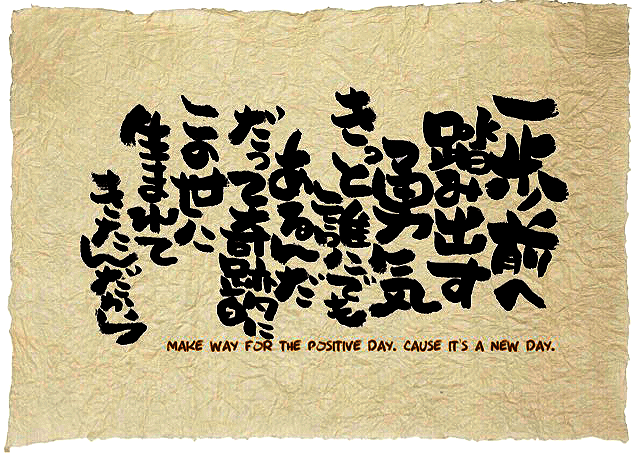 一歩前へ
踏み出す
勇気
きっと誰にでも
あるんだ
だって奇跡的に
この世に
生まれて
きたんだから
MAKE WAY FOR THE POSITIVE DAY. CAUSE IT'S A NEW DAY.